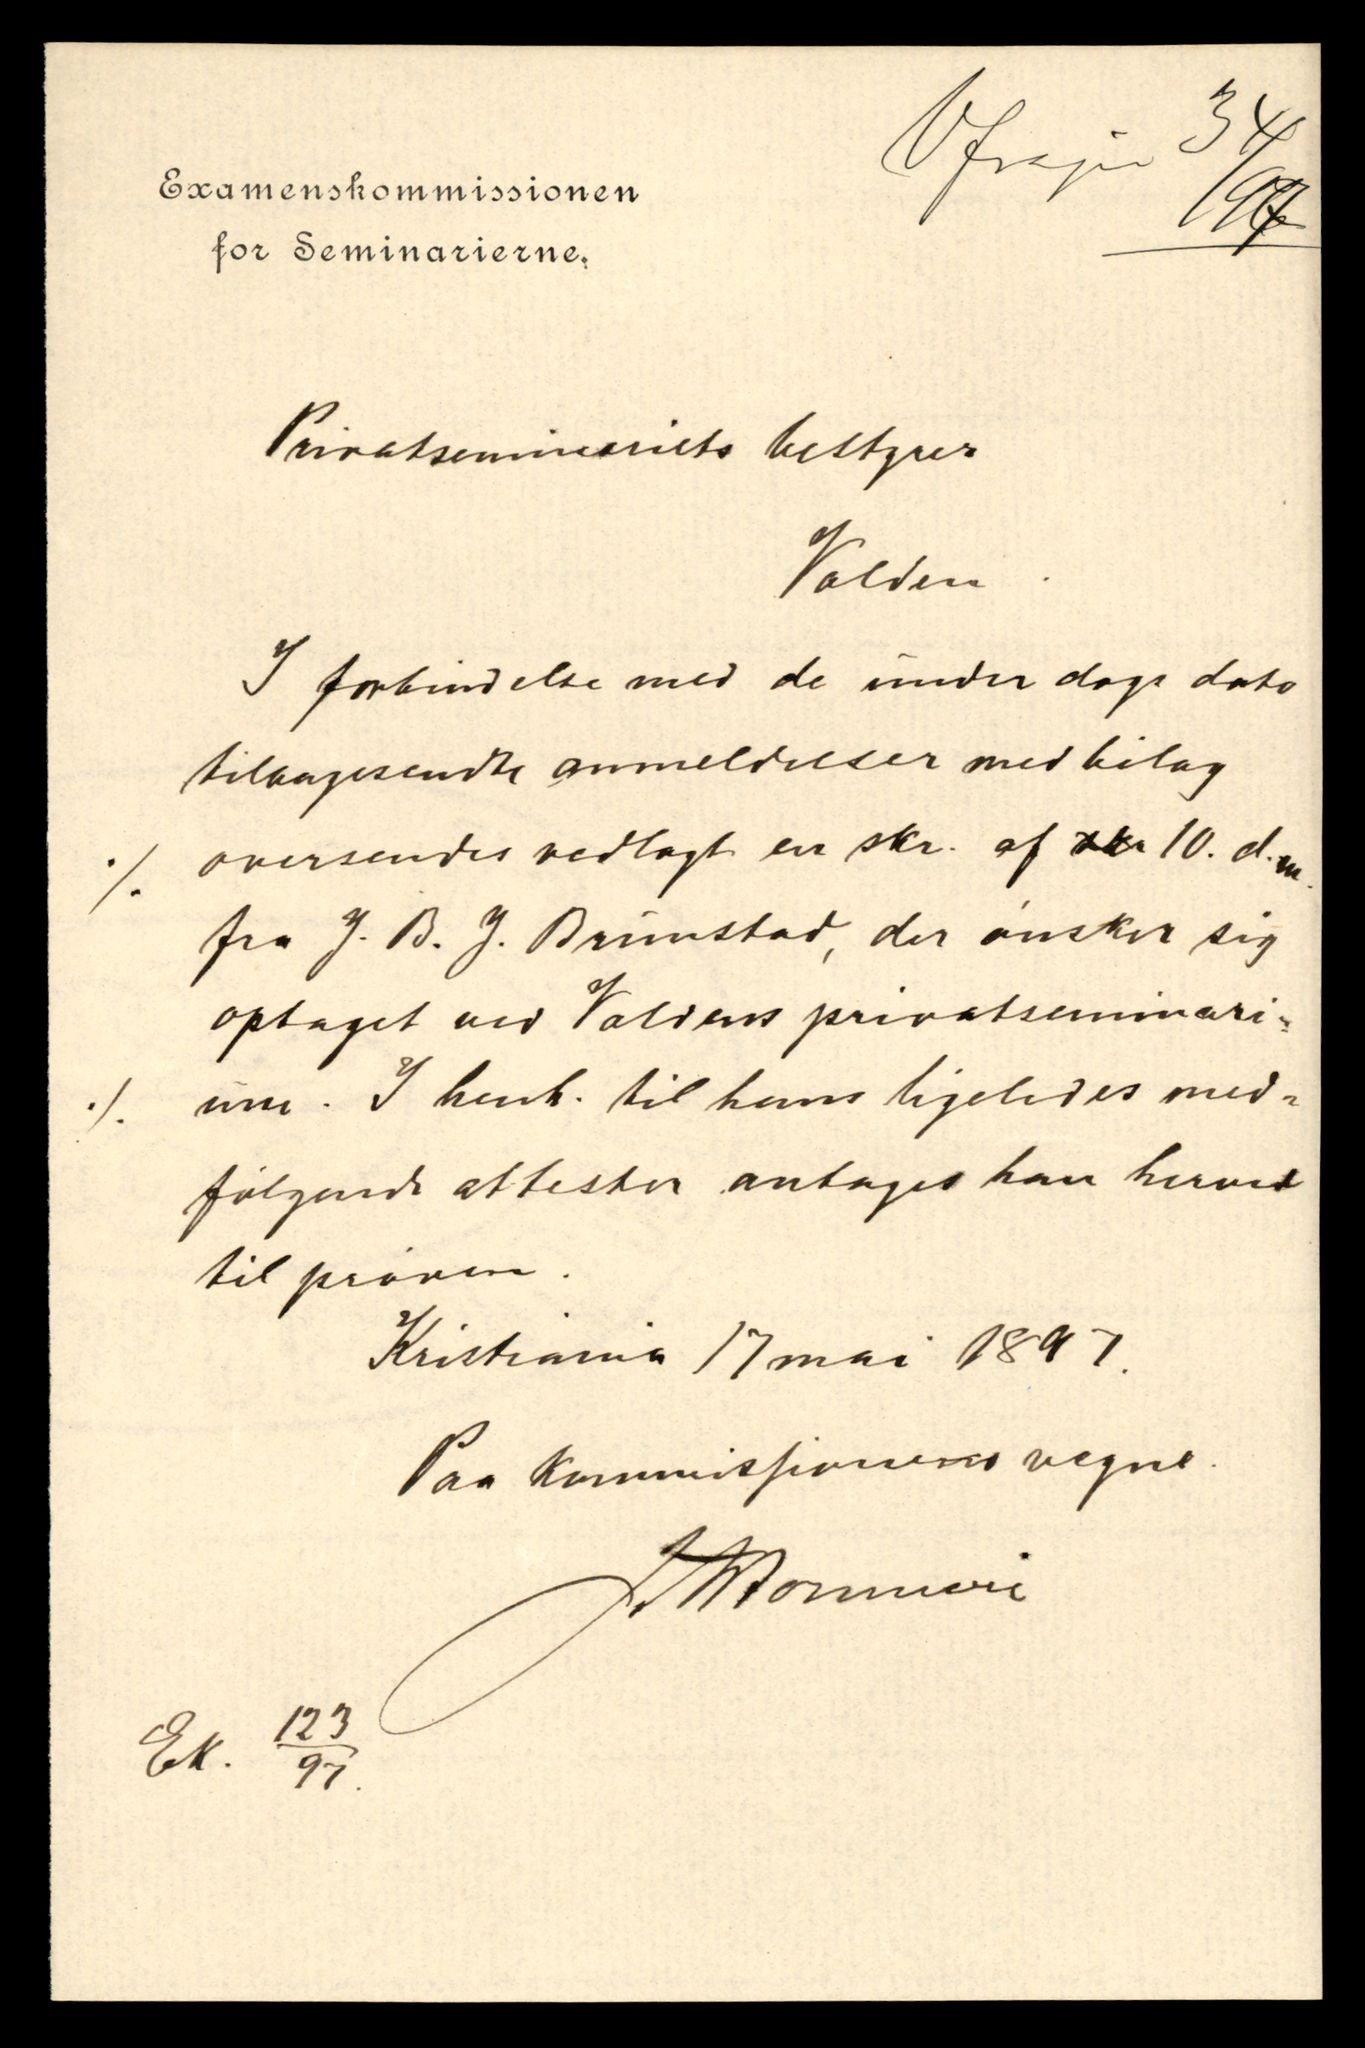 34
/97
Examenskommissionen
for Seminarierne.
Privatseminariets bestyrer
Volden.
I forbindelse med de under dags dato
tilbagesendte anmeldelser med bilag
./. oversendes vedlagt en skr. af 10. d.m.
fra J. B. J. Brunstad, der ønsker sig
optaget ved Voldens privatseminari-
./. um. I henh. til hans ligeledes med-
følgende attester antages han herved
til prøven.
Kristiania 17 mai 1897.
Paa kommissionens vegne.
Ek. 123
97.